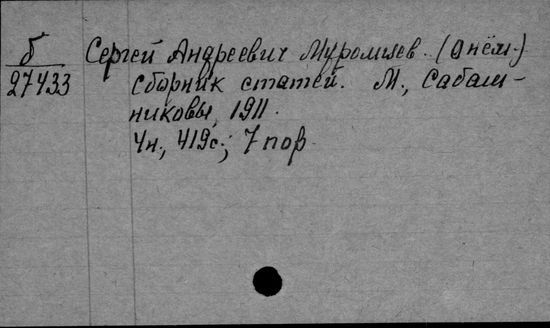 Б Сергей Андреевич Муромцев. (О нём.)
27433 Сборник статей. М., Сабаш-
никовы, 1911.
4н., 419с.; 7 пор.